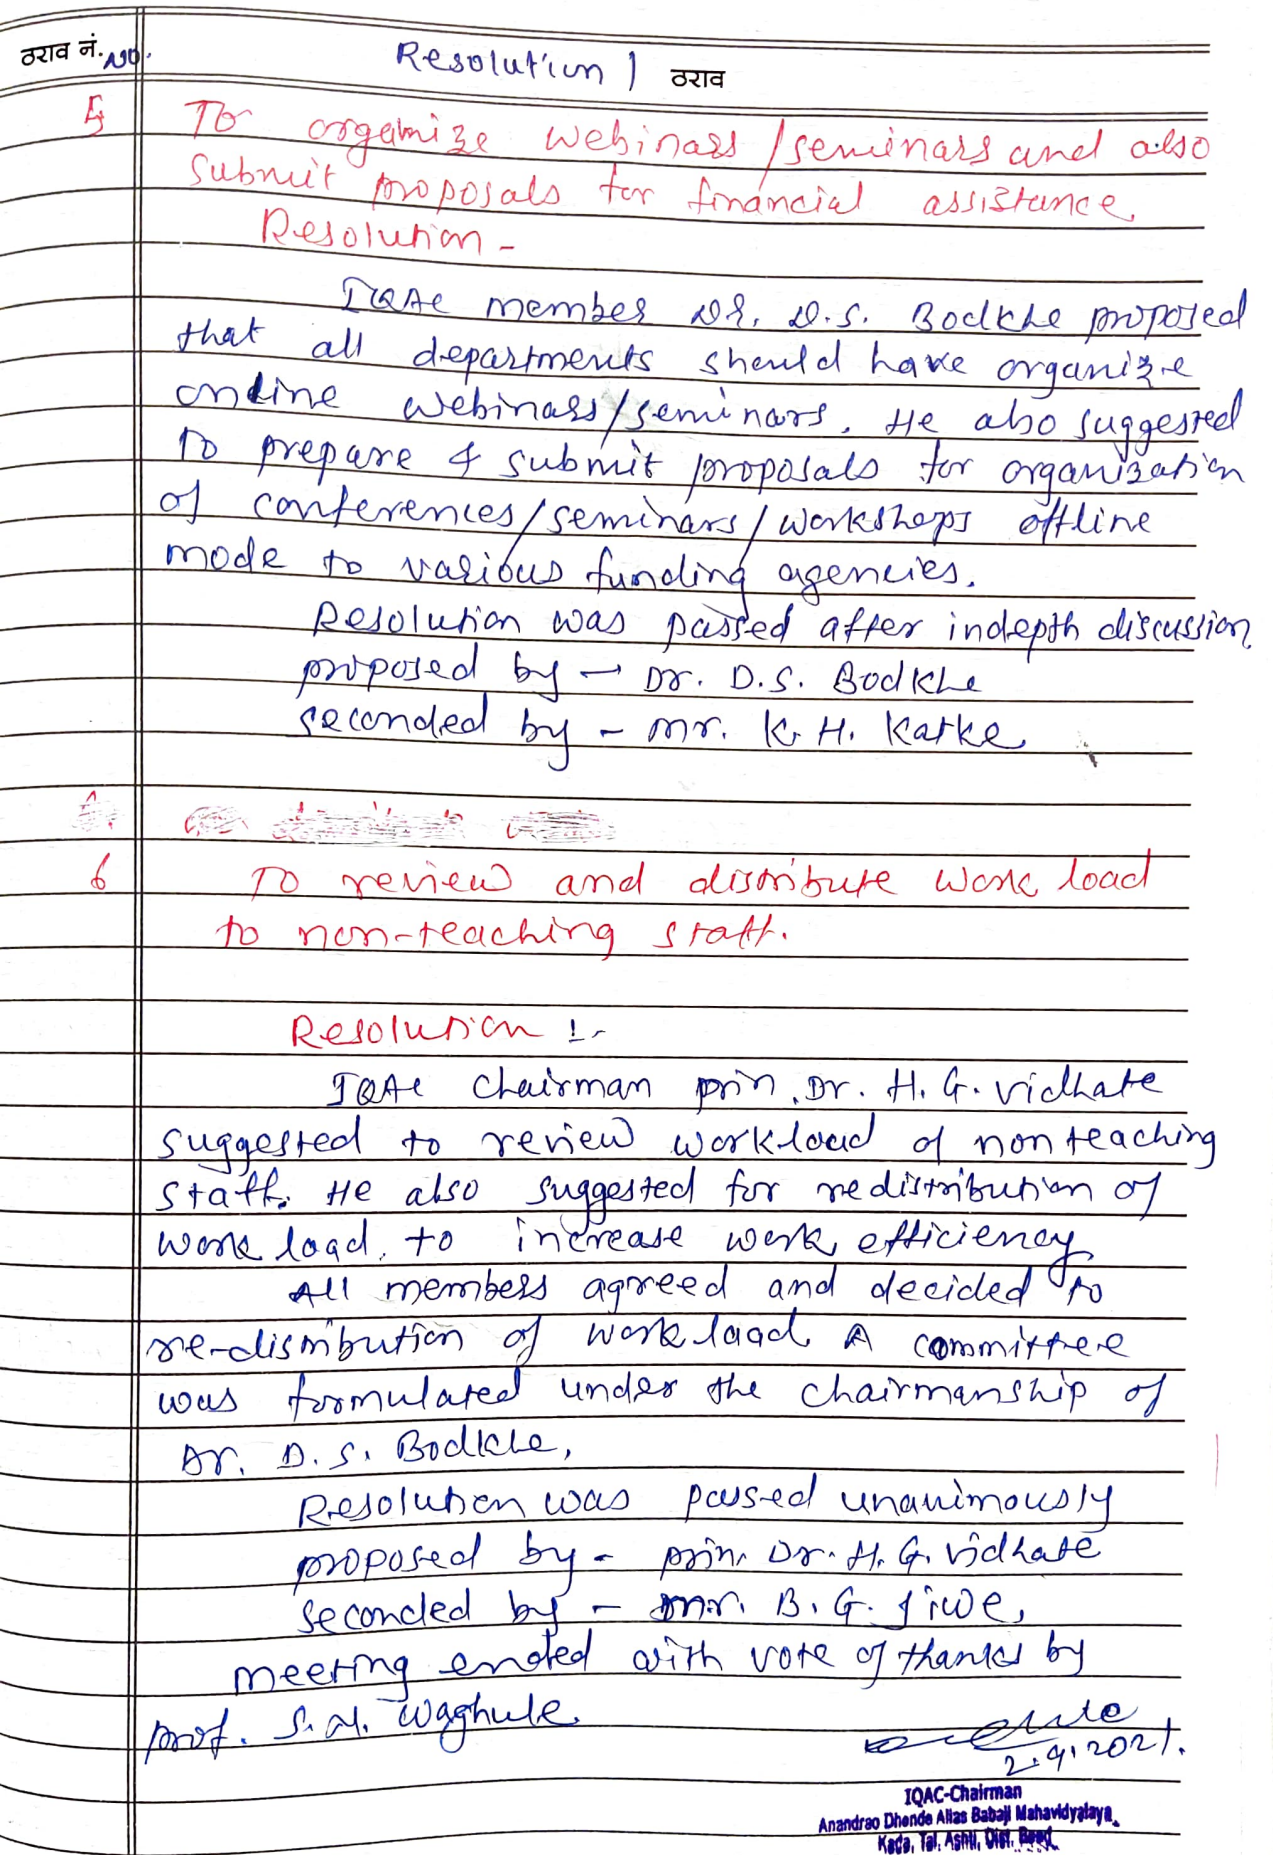 ठराव नं. No.
Resolution / ठराव
5 To organize webinars/seminars and also
submit proposals for financial assistance.
Resolution -
IQAC member Dr. D.S. Bodkhe proposed
that all departments should have organize
online webinars/seminars. He also suggested
to prepare & submit proposals for organization
of conferences/seminars/workshops offline
mode to various funding agencies.
Resolution was passed after indepth discussion.
proposed by - Dr. D.S. Bodkhe
seconded by - mr. K. H. Karke
6 To review and distribute work load
to non-teaching staff.
Resolution :-
IQAC chairman prin. Dr. H. G. Vidhate
suggested to review workload of non teaching
staff. He also suggested for redistribution of
work load. to increase work efficiency
All members agreed and decided to
re-distribution of work load. A committee
was formulated under the chairmanship of
Dr. D. S. Bodkhe,
Resolution was passed unanimously
proposed by - prin. Dr. H. G. Vidhate
seconded by - mr. B. G. Jiwe,
meeting ended with vote of thanks by
prof. S. N. Waghule.
2.9.2021.
IQAC-Chairman
Anandrao Dhonde Alias Babaji Mahavidyalaya,
Kada, Tal. Ashti, Dist. Beed.